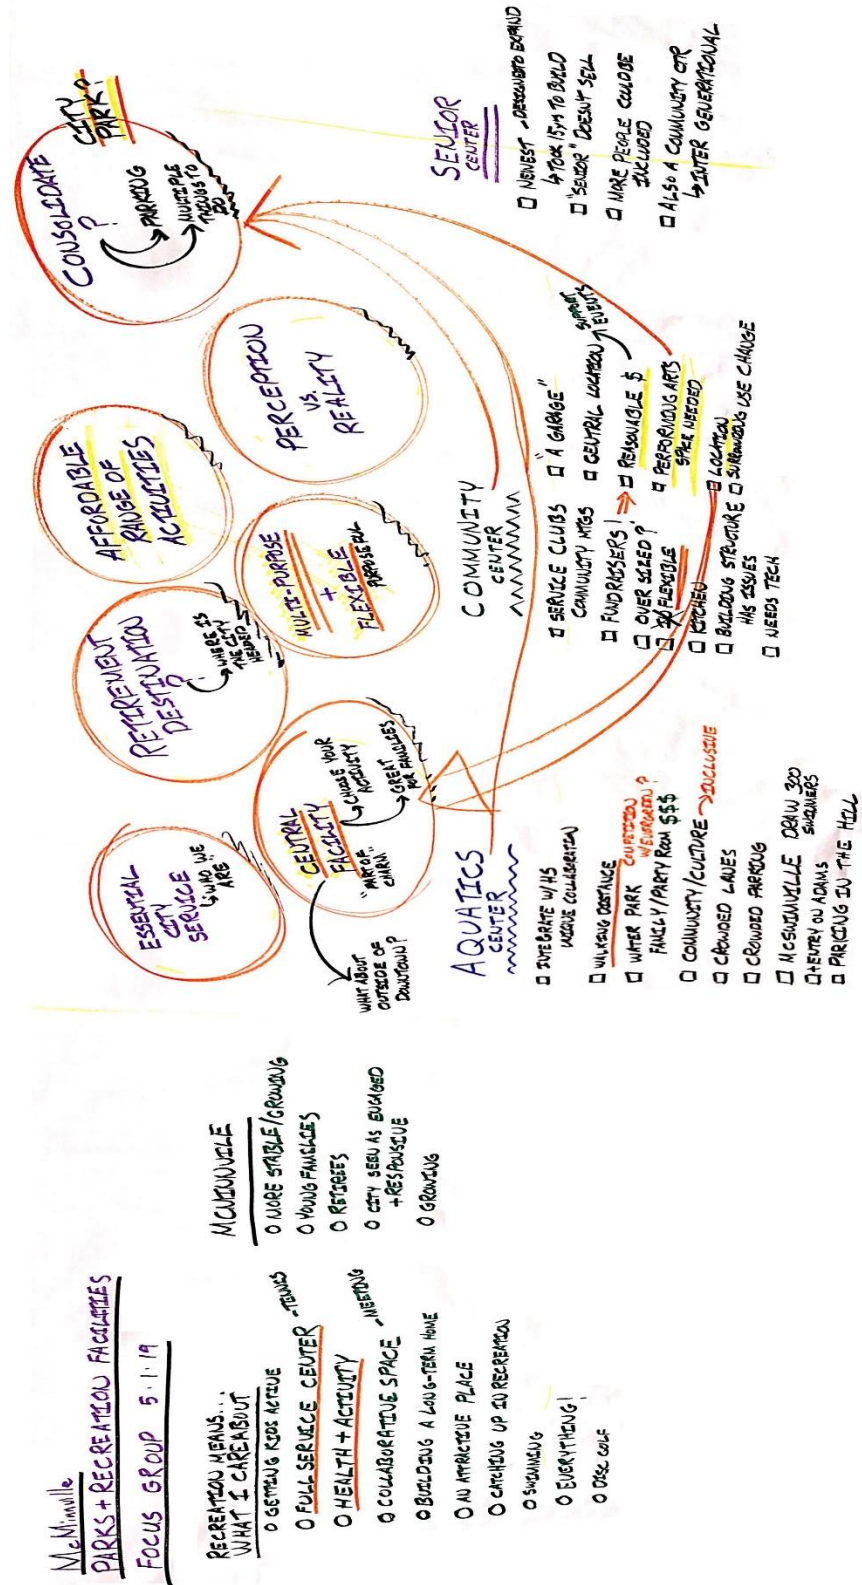 McMinnville
PARKS + RECREATION FACILITIES
FOCUS GROUP 5.1.19
RECREATION MEANS...
WHAT I CARE ABOUT
GETTING KIDS ACTIVE
FULL SERVICE CENTER - TENNIS
HEALTH + ACTIVITY
COLLABORATIVE SPACE - MEETING
BUILDING A LONG-TERM HOME
AN ATTRACTIVE PLACE
CATCHING UP IN RECREATION
SWIMMING
EVERYTHING!
DISC GOLF
MCMINNVILLE
MORE STABLE/GROWING
YOUNG FAMILIES
RETIREES
CITY SEEN AS ENGAGED
+ RESPONSIVE
GROWING
ESSENTIAL
CITY
SERVICE
"WHO WE
ARE"
RETIREMENT
DESTINATION
?
WHERE IS
THE CITY
HEADED
AFFORDABLE
RANGE OF
ACTIVITIES
CONSOLIDATE
?
PARKING
MULTIPLE
THINGS TO
DO
CITY
PARK?
CENTRAL
FACILITY
"PART OF
CHARM"
CHOOSE YOUR
ACTIVITY
GREAT
FOR FAMILIES
WHAT ABOUT
OUTSIDE OF
DOWNTOWN?
MULTI-PURPOSE
+
FLEXIBLE
PURPOSEFUL
PERCEPTION
VS.
REALITY
AQUATICS
CENTER
INTEGRATE W/ HS
UNIQUE COLLABORATION
WALKING DISTANCE
WATER PARK COMPETITION
W/ EVERGREEN?
FAMILY/PARTY ROOM $$$
COMMUNITY/CULTURE → INCLUSIVE
CROWDED LANES
CROWDED PARKING
MCSWINVILLE DRAW 300
SWIMMERS
ENTRY ON ADAMS
PARKING IN THE HILL
COMMUNITY
CENTER
SERVICE CLUBS
COMMUNITY MTGS
FUNDRAISERS!
OVERSIZED?
FLEXIBLE
KITCHEN
BUILDING STRUCTURE
HAS ISSUES
NEEDS TECH
"A GARAGE"
CENTRAL LOCATION
SUPPORT
EVENTS
REASONABLE $
PERFORMING ARTS
SPACE NEEDED
LOCATION
SURROUNDING USE CHANGE
SENIOR
CENTER
NEWEST - DESIGNED TO EXPAND
TOOK 15 yrs TO BUILD
"SENIOR" DOESN'T SELL
MORE PEOPLE COULD BE
INCLUDED
ALSO A COMMUNITY CTR
INTER GENERATIONAL